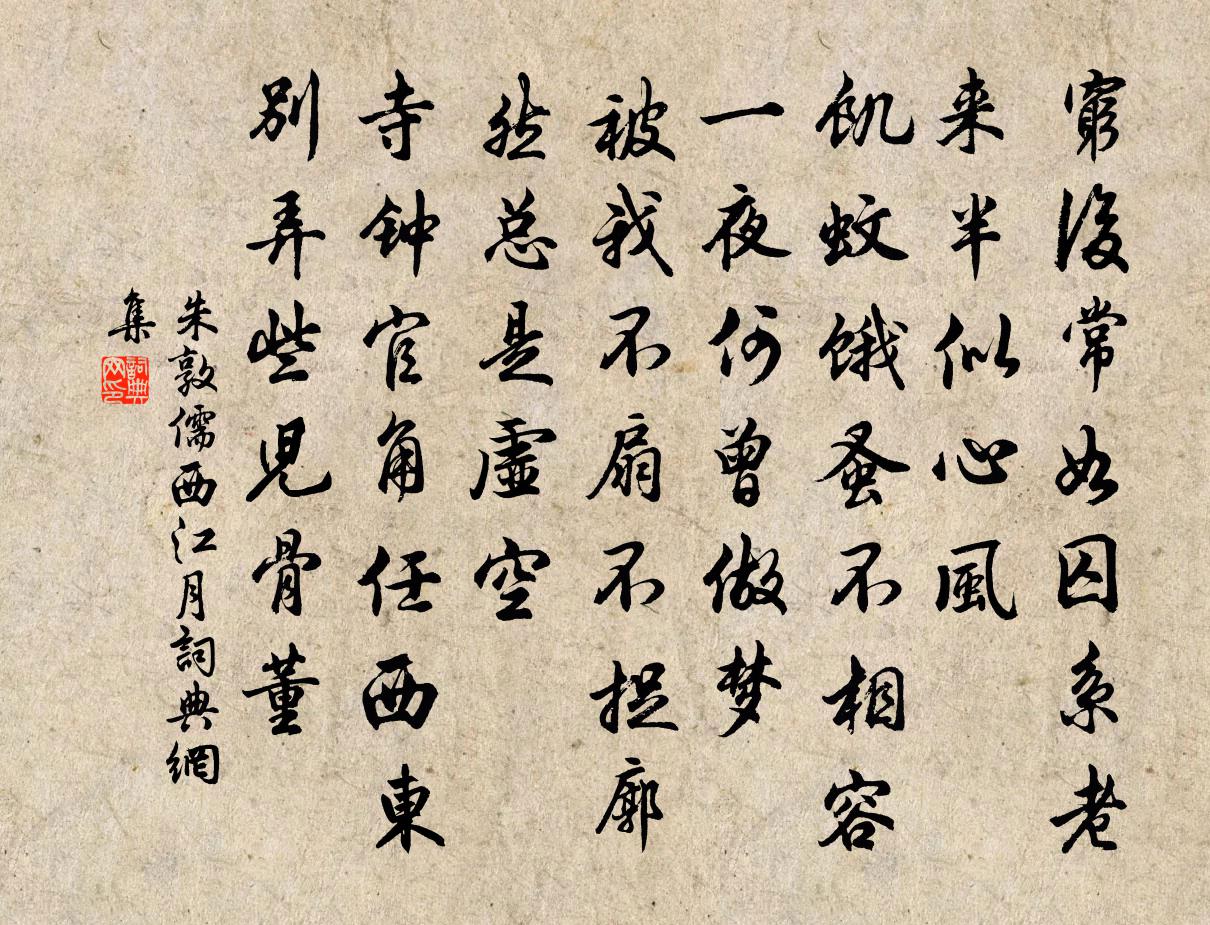 窮後常如囚系老
来半似心風
飢蚊餓蚤不相容
一夜何曾做梦
被我不扇不捉廓
然总是虛空
寺钟官角任西東
别弄些児骨董
朱敦儒西江月詞典網
集
詞典網印